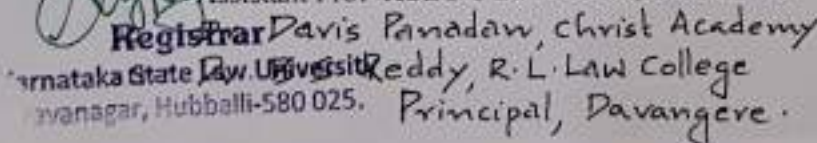 Registrar Davis Panadan, Christ Academy
Karnataka State Law University Reddy, R.L. Law College
Navanagar, Hubballi-580 025. Principal, Davangere.